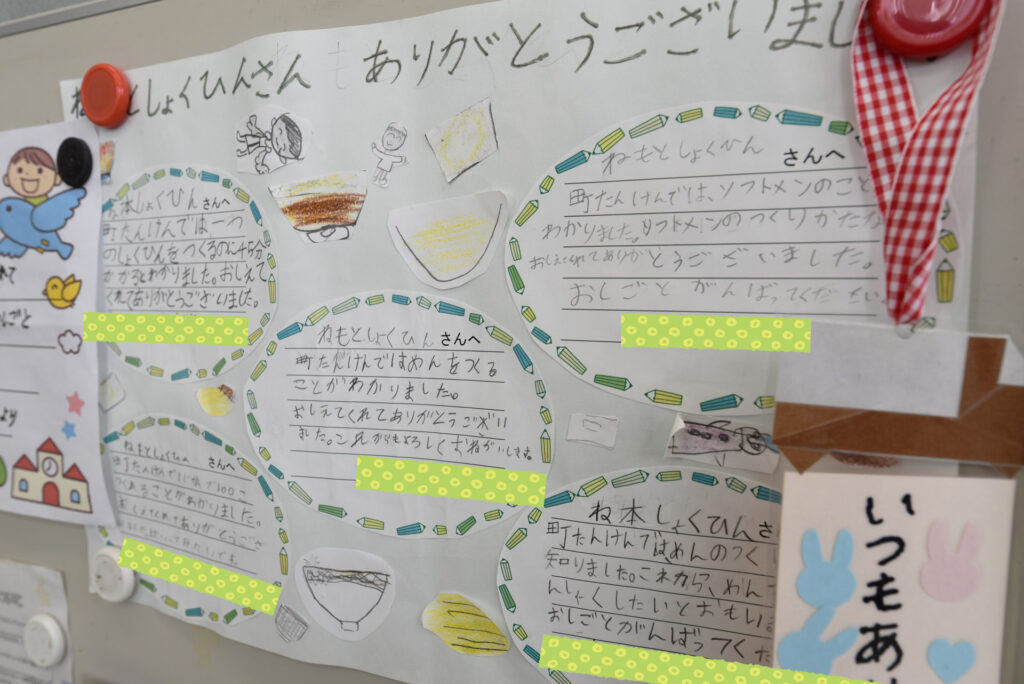 ねもとしょくひんさん ありがとうございまし
ね本しょくひん さんへ
町たんけんでは一つ
のしょくひんをつくるのに
かかるとわかりました。おしえて
くれてありがとうございました。
ねもとしょくひん さんへ
町たんけんでは、ソフトメンのこと
わかりました。ソフトメンのつくりかた
おしえてくれてありがとうございました。
おしごとがんばってください。
ねもとしょくひん さんへ
町たんけんではめんをつくる
ことがわかりました。
おしえてくれてありがとうござい
ました。これからもよろしくおねがいします。
ねもとしょくひん さんへ
町たんけんで
つくることがわかりました。
おしえてくれてありがとうござい
ね本しょくひんさ
町たんけんではめんのつく
知りました。これから、めん
しょくしたいとおもい
おしごとがんばってくだ
いつもあり
しごと
より